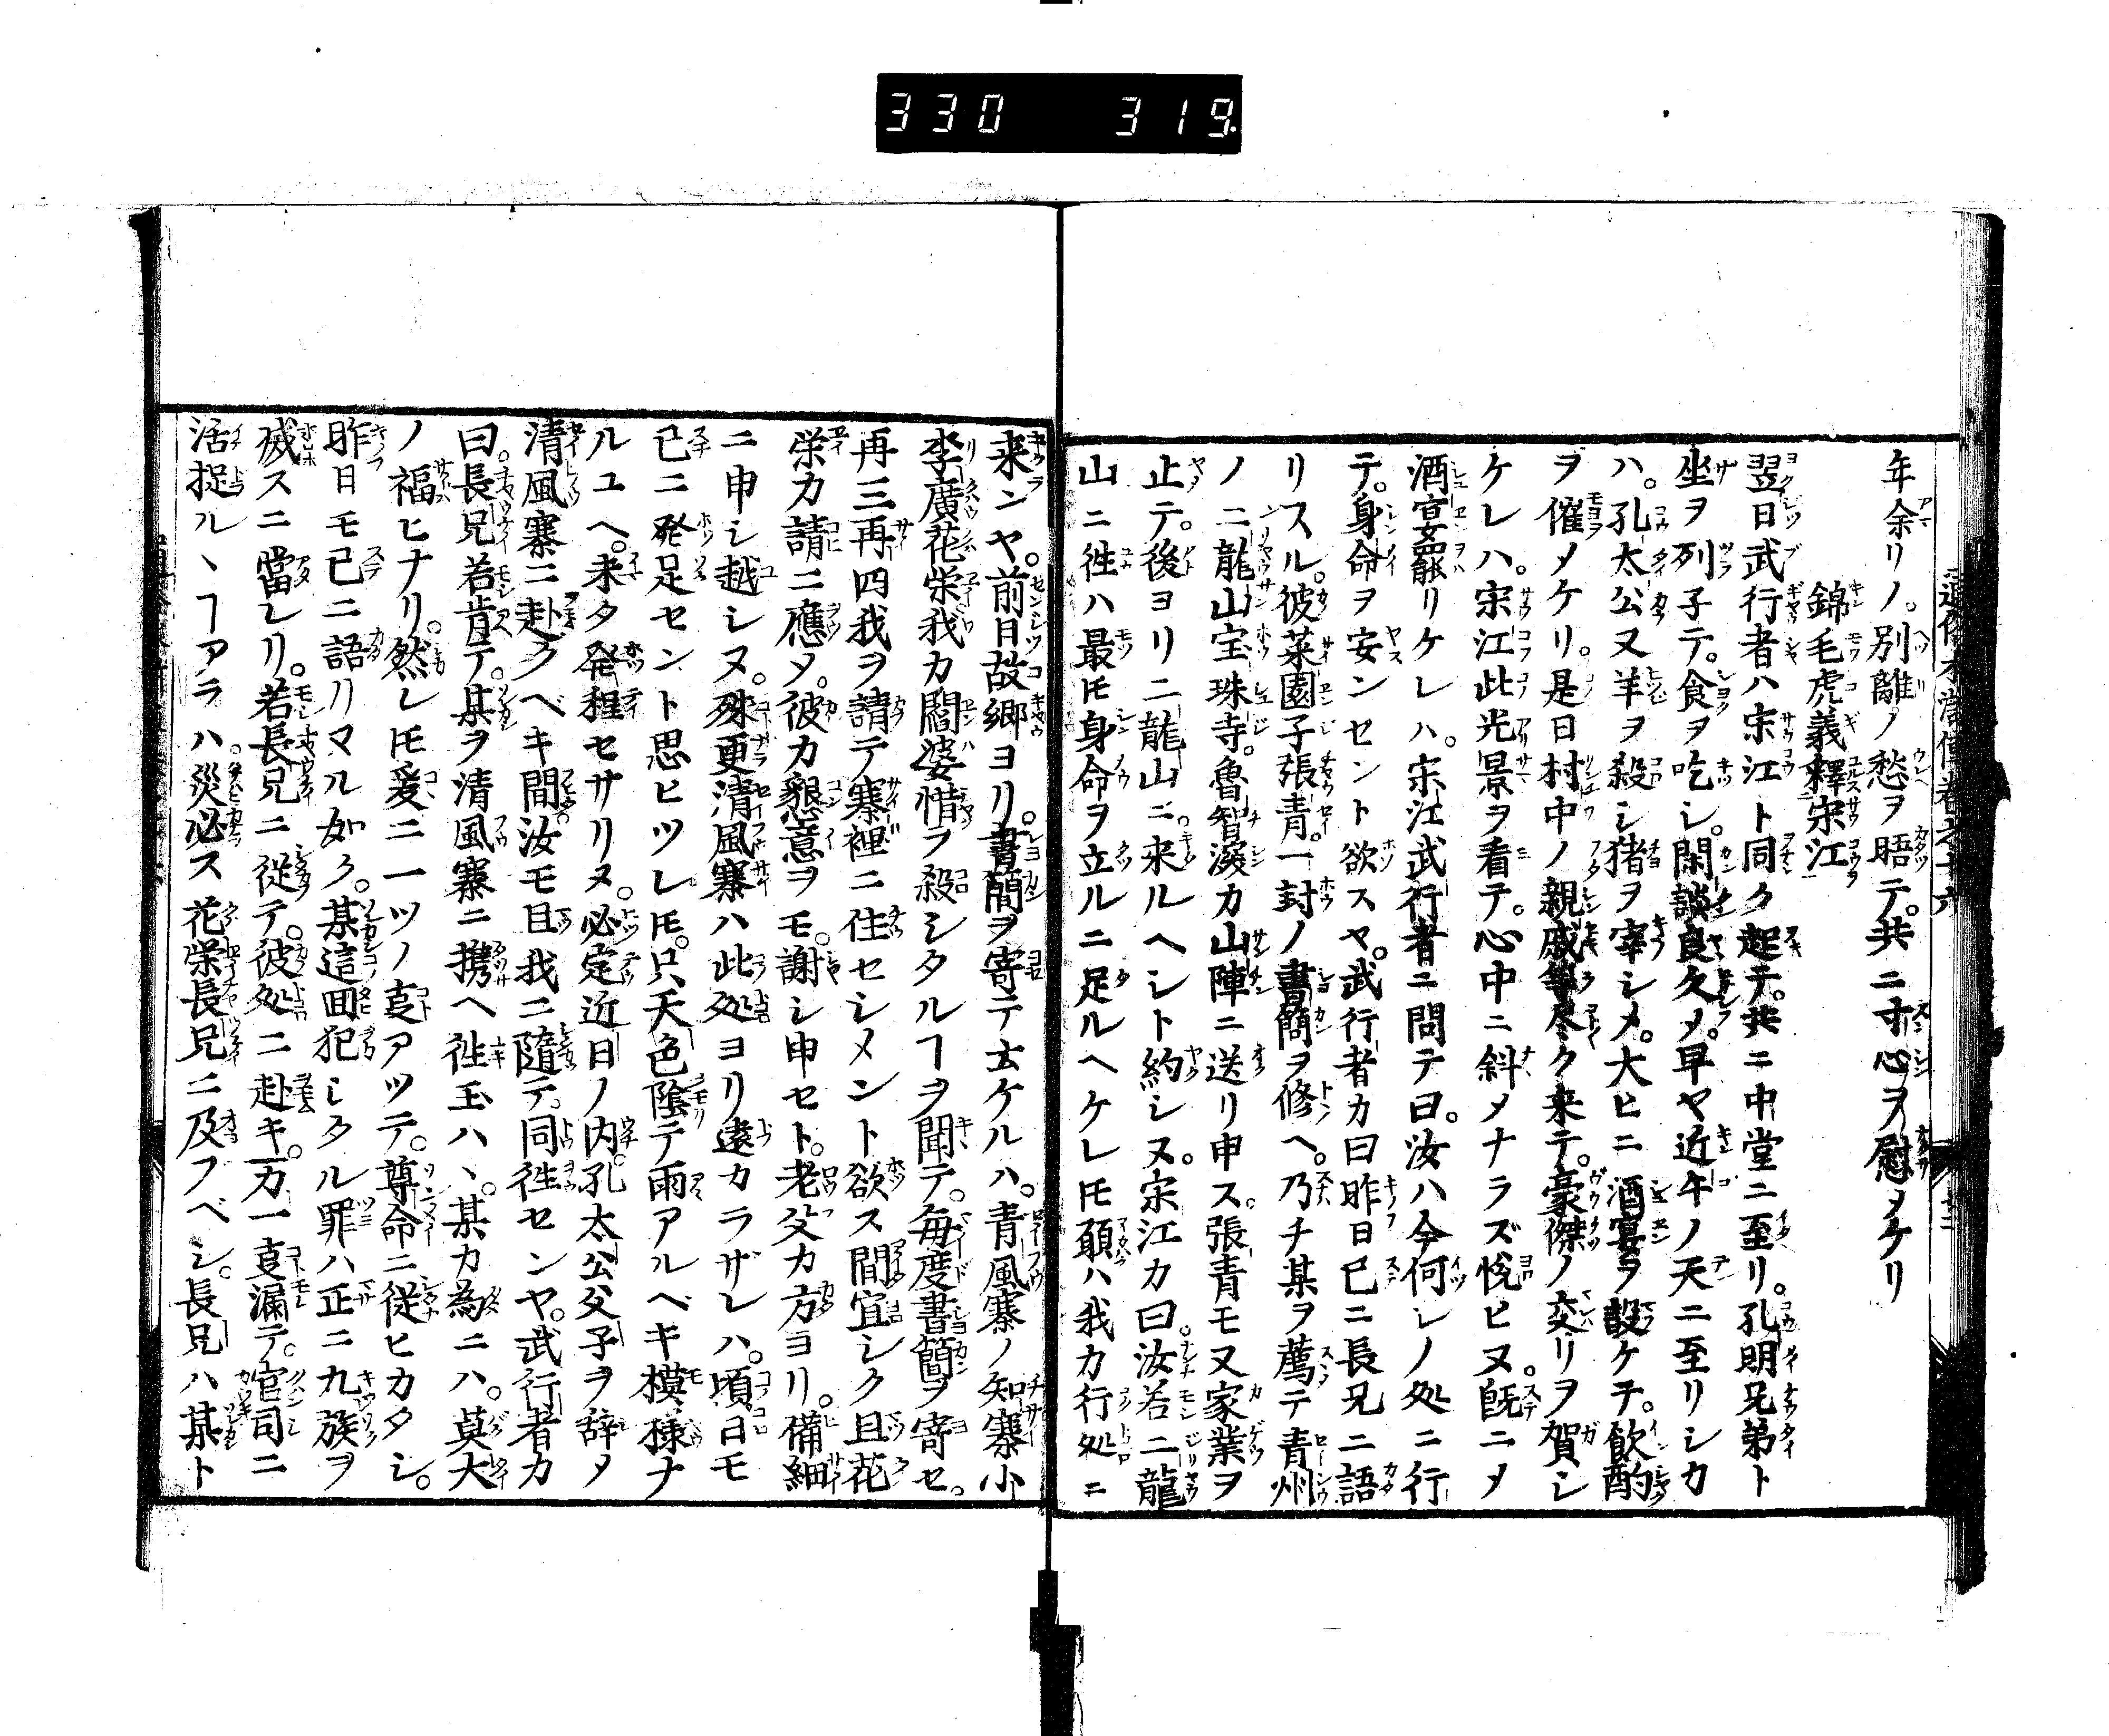 330 319
年余リノ。別離ノ愁ヲ晤テ。共ニ寸心ヲ慰メケリ
錦毛虎義釋宋江
翌日武行者ハ宋江ト同ク起テ。共ニ中堂ニ至リ。孔明兄弟ト
坐ヲ列子テ。食ヲ吃シ。閑談良久メ。早ヤ近午ノ天ニ至リシカ
ハ。孔太公又羊ヲ殺シ猪ヲ宰シメ。大ヒニ酒宴ヲ設ケテ。飲酌
ヲ催メケリ。是日村中ノ親戚等尽ク来テ。豪傑ノ交リヲ賀シ
ケレハ。宋江此光景ヲ看テ。心中ニ斜メナラズ悦ヒヌ。既ニメ
酒宴罷リケレハ。宋江武行者ニ問テ曰。汝ハ今何レノ処ニ行
テ。身命ヲ安ンセント欲スヤ。武行者カ曰昨日已ニ長兄ニ語
リスル。彼菜園子張青。一封ノ書簡ヲ修ヘ。乃チ某ヲ薦テ青州
ノ二龍山宝珠寺。魯智深カ山陣ニ送リ申ス。張青モ又家業ヲ
止テ。後ヨリ二龍山ニ来ルヘシト約シヌ。宋江カ曰。汝若二龍
山ニ徃ハ最𪜈身命ヲ立ルニ足ルヘケレ𪜈願ハ我カ行処ニ
来ンヤ。前日故郷ヨリ。書簡ヲ寄テ云ケルハ。青風寨ノ知寨小
李廣花栄我カ閻婆惜ヲ殺シタルヿヲ聞テ。毎度書簡ヲ寄セ。
再三再四我ヲ請テ寨裡ニ住セシメント欲ス間宜シク且花
栄カ請ニ應メ。彼カ懇意ヲモ。謝シ申セト。老父カ方ヨリ。備細
ニ申シ越シヌ。殊更清風寨ハ此処ヨリ遠カラザレハ。頃日モ
已ニ発足セント思ヒツレ𪜈。只天色陰テ雨アルベキ模様ナ
ルユヘ。未タ発程セサリヌ。必定近日ノ内。孔太公父子ヲ辞メ
清風寨ニ赴クベキ間汝モ且我ニ隨テ。同徃センヤ。武行者カ
曰。長兄若肯テ。某ヲ清風寨ニ携ヘ徃玉ハヽ。某カ為ニハ。莫大
ノ福ヒナリ。然レ𪜈爰ニ一ツノ㕝アツテ。尊命ニ従ヒカタシ。
昨日モ已ニ語リマル如ク。某這囬犯シタル罪ハ正ニ九族ヲ
滅スニ當レリ。若長兄ニ従テ。彼処ニ赴キ。万一㕝漏テ。官司ニ
活捉ルヽヿアラハ。災必ス花栄長兄ニ及フベシ。長兄ハ某ト